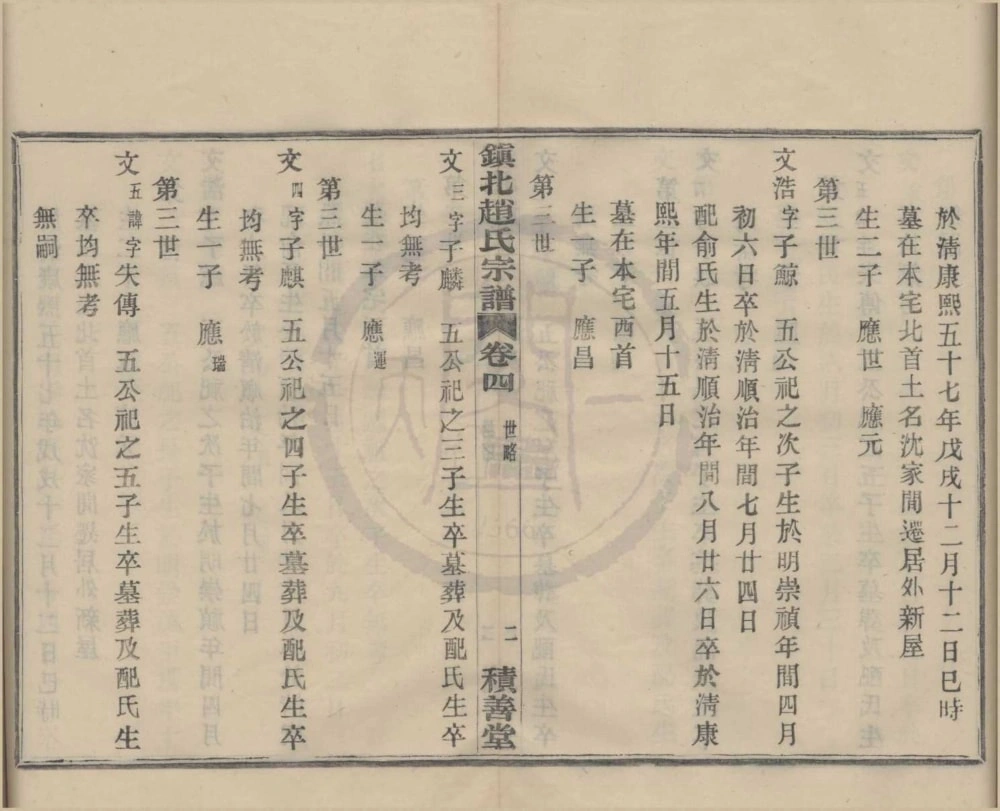 於清康熙五十七年戊戌十二月十二日巳時
墓在本宅北首土名沈家間遷居外新屋
生二子　應世　應元
第三世
文浩字子鯨　五公祀之次子生於明崇禎年間四月
初六日卒於清順治年間七月廿四日
配俞氏生於清順治年間八月廿六日卒於清康
熙年間五月十五日
墓在本宅西首
生一子　應昌
第三世
鎮北趙氏宗譜　卷四　世略　二　積善堂
文三字子麟　五公祀之三子生卒墓葬及配氏生卒
均無考
生一子　應運
第三世
文四字子麒　五公祀之四子生卒墓葬及配氏生卒
均無考
生一子　應瑞
第三世
文五諱字失傳　五公祀之五子生卒墓葬及配氏生
卒均無考
無嗣